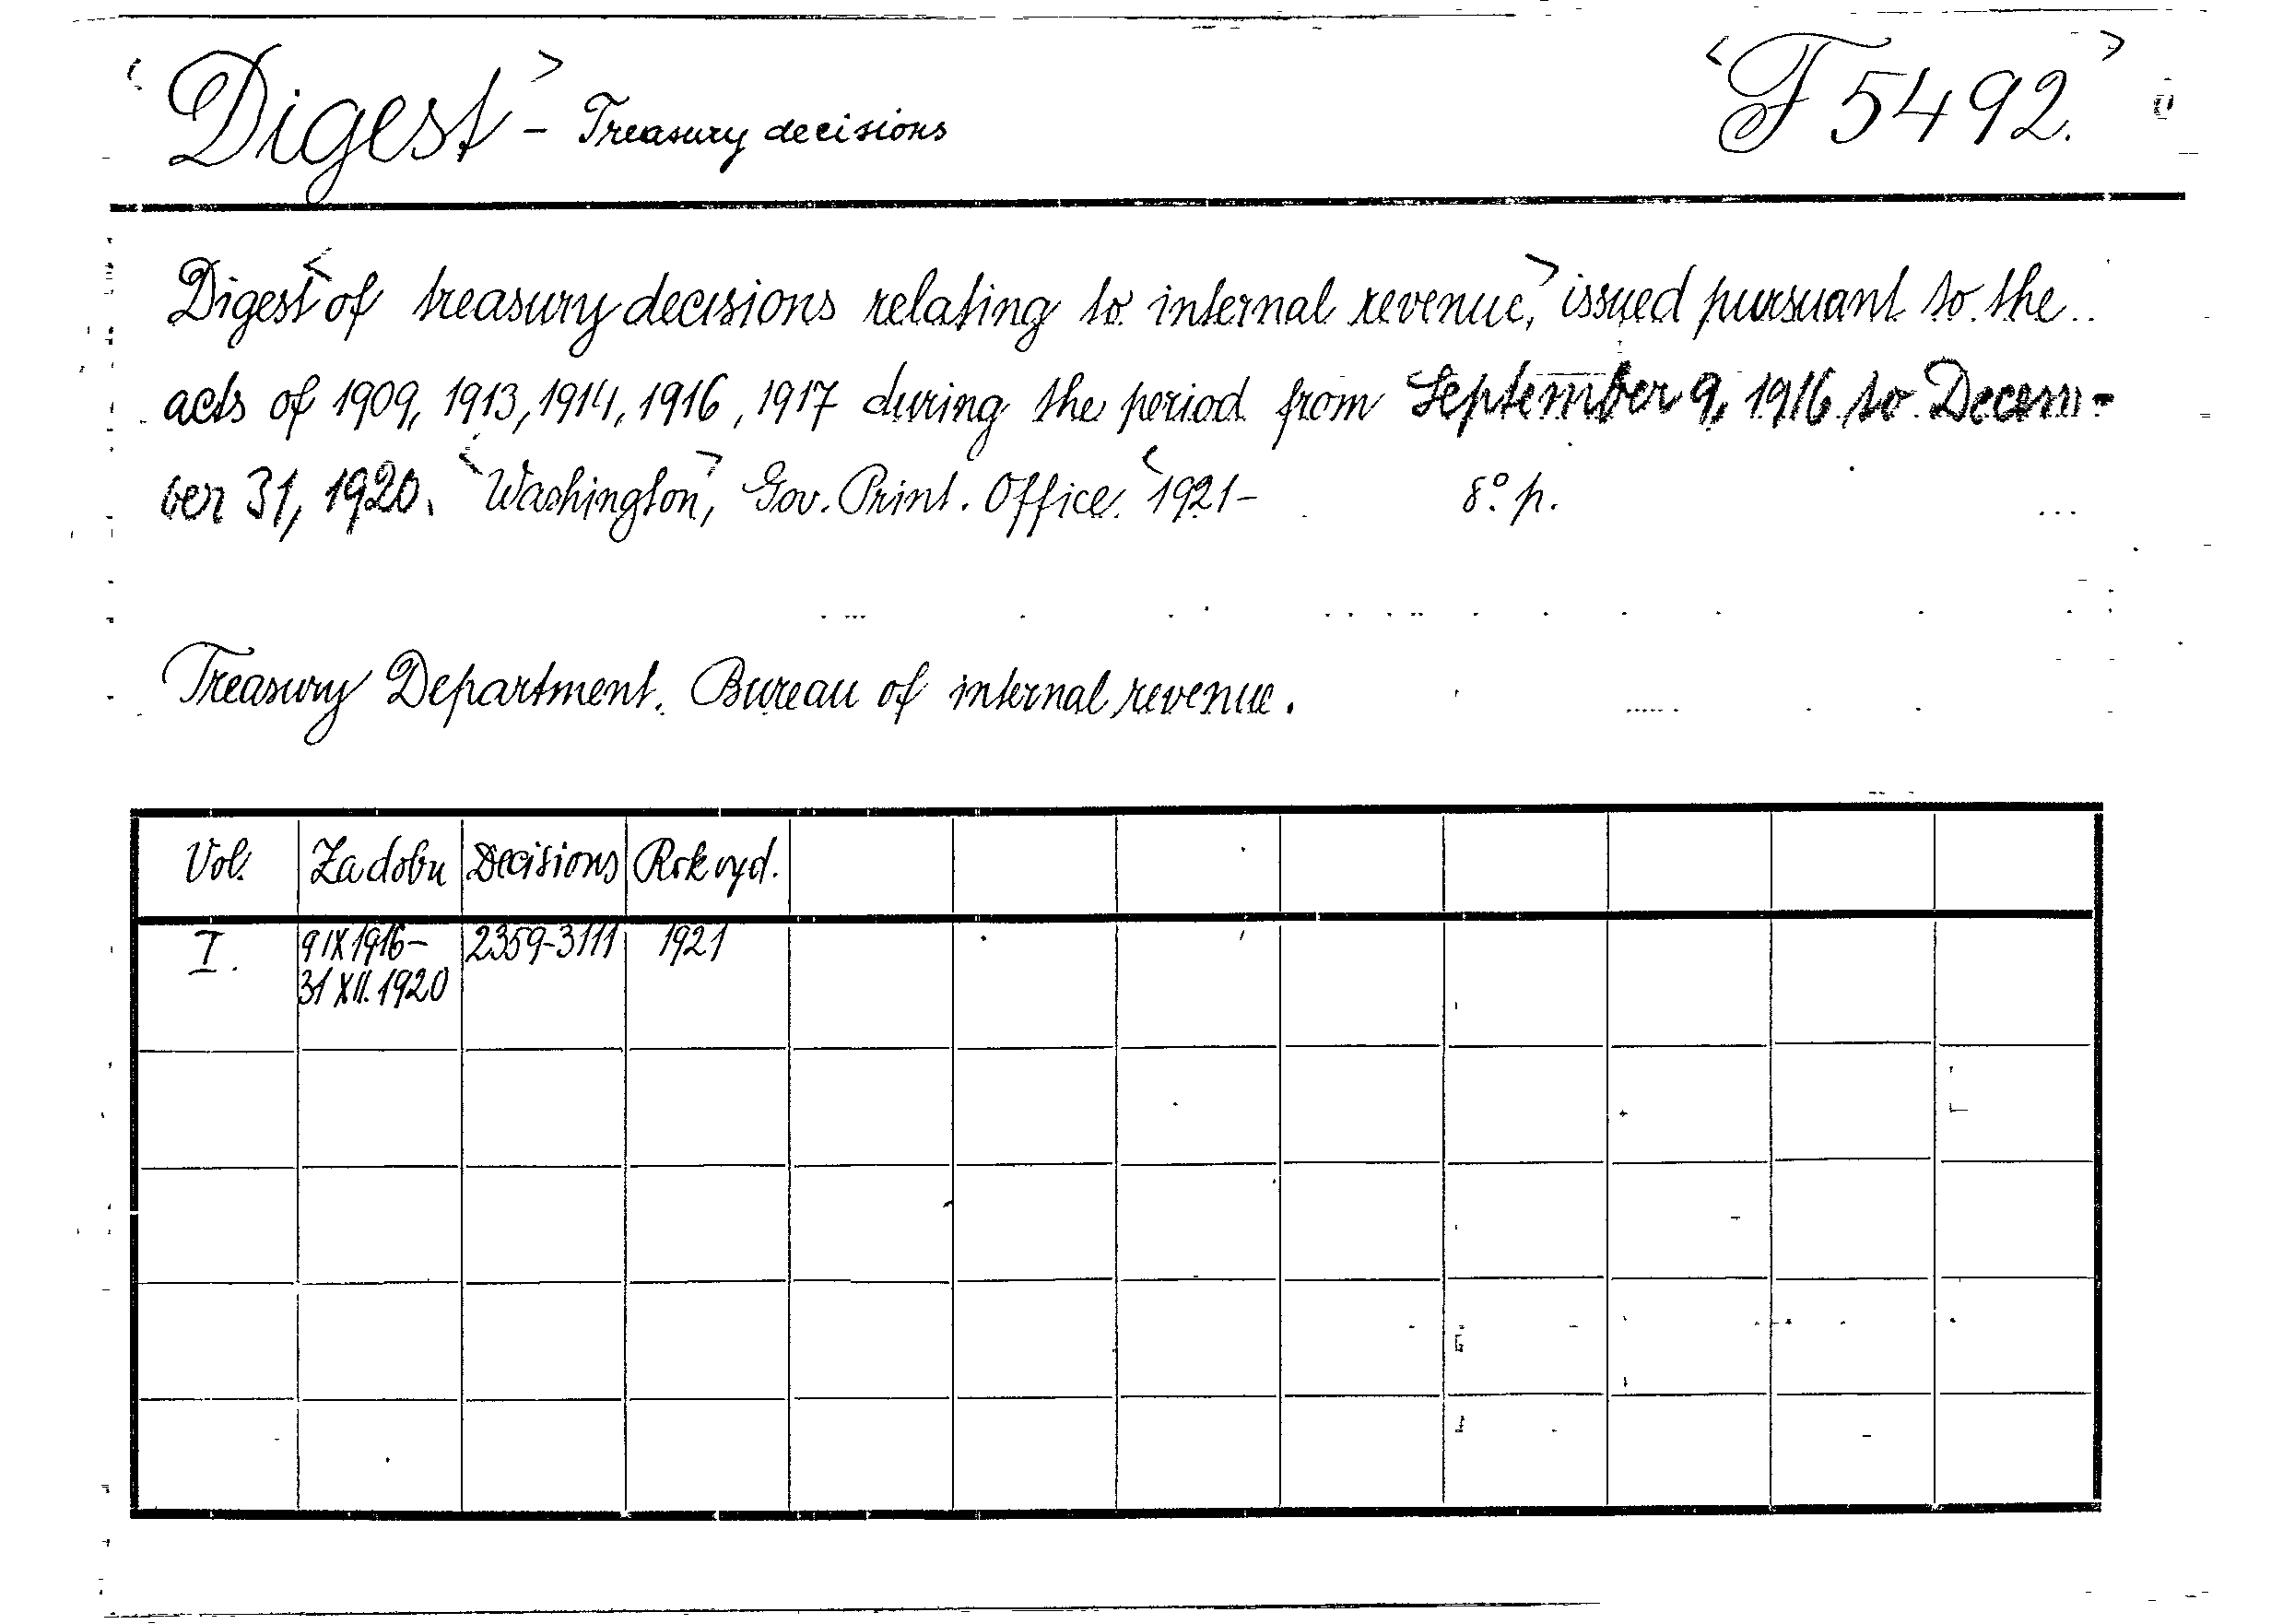 <Digest> - Treasury decisions <F 5492.>
Digest <of treasury decisions relating to internal revenue,> issued pursuant to the
acts of 1909, 1913, 1914, 1916, 1917 during the period from September 9, 1916 to Decem-
ber 31, 1920. <Washington>, Gov. Print. Office. <1921- 8°. p.
Treasury Department. Bureau of internal revenue.
Vol. Za dobu Decisions Rok vyd.
I. 9 IX 1916- 2359-3111 1921
31 XII. 1920